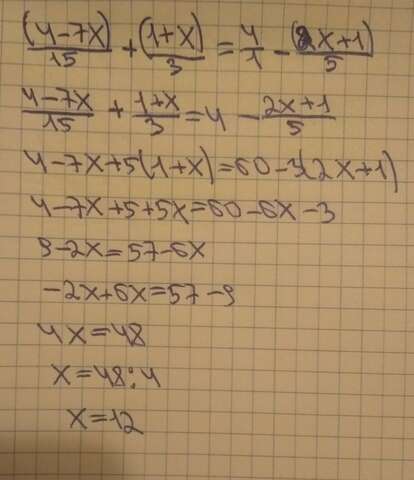 (4-7x)/15 + (1+x)/3 = 4/1 - (2x+1)/5
4-7x/15 + 1+x/3 = 4 - 2x+1/5
4-7x+5(1+x)=60-3(2x+1)
4-7x+5+5x=60-6x-3
9-2x=57-6x
-2x+6x=57-9
4x=48
x=48:4
x=12